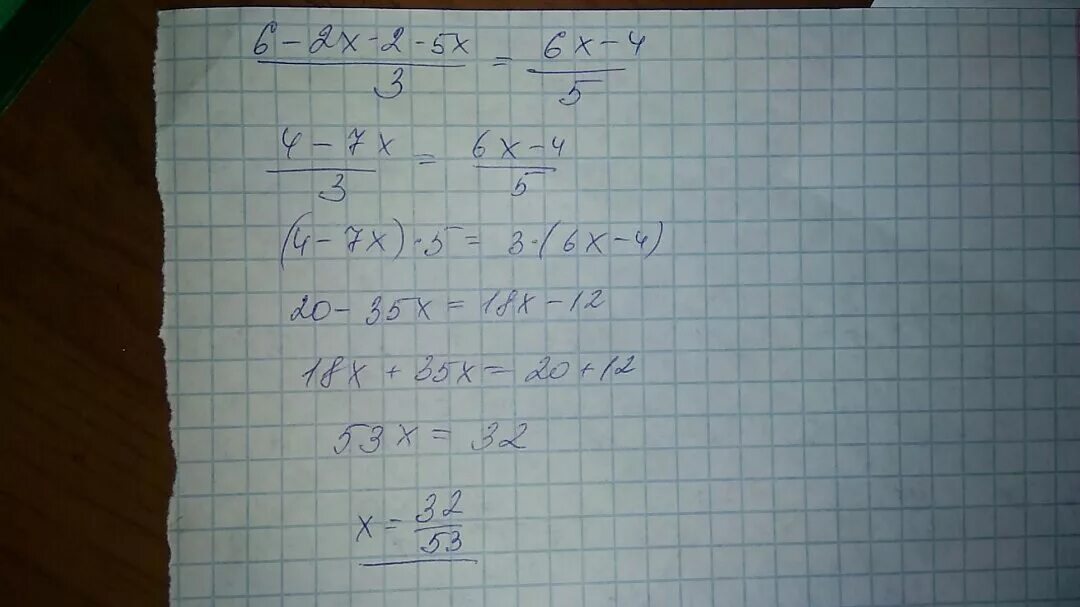 6 - 2x - 2 - 5x / 3 = 6x - 4 / 5
4 - 7x / 3 = 6x - 4 / 5
(4 - 7x) · 5 = 3 · (6x - 4)
20 - 35x = 18x - 12
18x + 35x = 20 + 12
53x = 32
x = 32 / 53